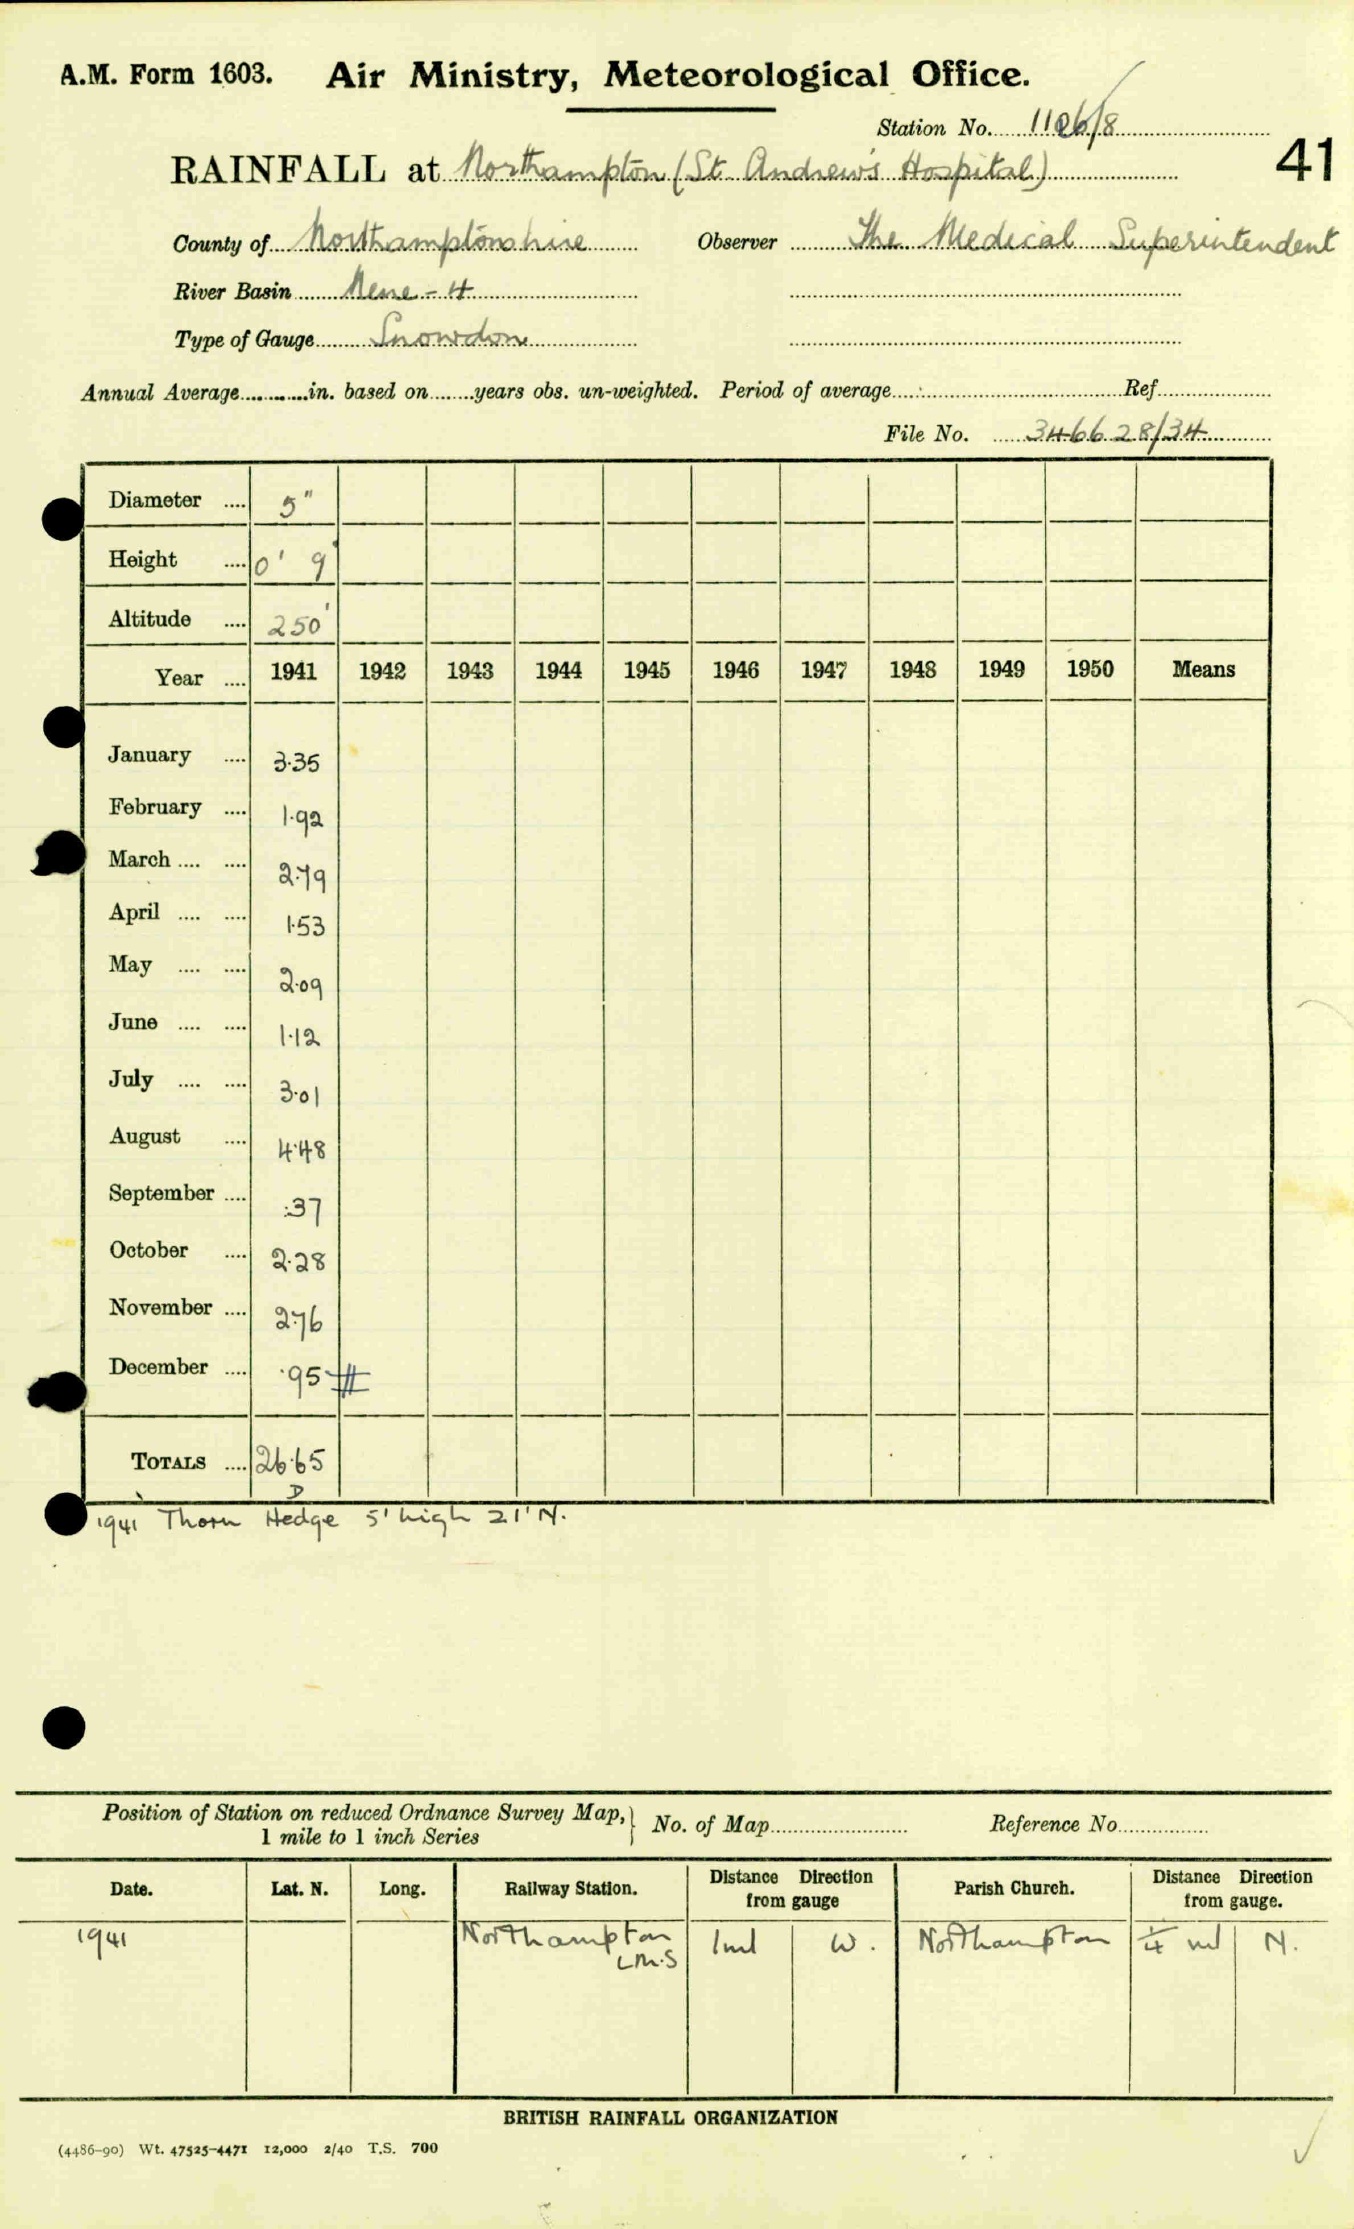 A.M. Form 1603. Air Ministry, Meteorological Office.
Station No. 1106/8
41
RAINFALL at Northampton (St. Andrew's Hospital)
County of Northamptonshire Observer The Medical Superintendent
River Basin Nene - 4
Type of Gauge Snowdon
Annual Average in. based on years obs. un-weighted. Period of average Ref
File No. 346628/34
Diameter .... 5"
Height .... 0' 9"
Altitude .... 250'
Year .... 1941 1942 1943 1944 1945 1946 1947 1948 1949 1950 Means
January .... 3.35
February .... 1.92
March .... .... 2.79
April .... .... 1.53
May .... .... 2.09
June .... .... 1.12
July .... .... 3.01
August .... 4.48
September .... .37
October .... 2.28
November .... 2.76
December .... .95 #
TOTALS .... 26.65
D
1941 Thorn Hedge 5' high 21' N.
Position of Station on reduced Ordnance Survey Map, } No. of Map Reference No
1 mile to 1 inch Series
Date. Lat. N. Long. Railway Station. Distance Direction from gauge Parish Church. Distance Direction from gauge.
1941 Northampton L.M.S 1 ml W. Northampton 1/4 ml N.
BRITISH RAINFALL ORGANIZATION
(4486-90) Wt. 47525-4471 12,000 2/40 T.S. 700